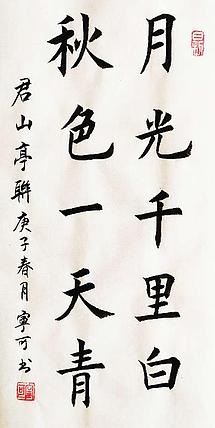 月光千里白
秋色一天青
君山亭联庚子春月宁可书